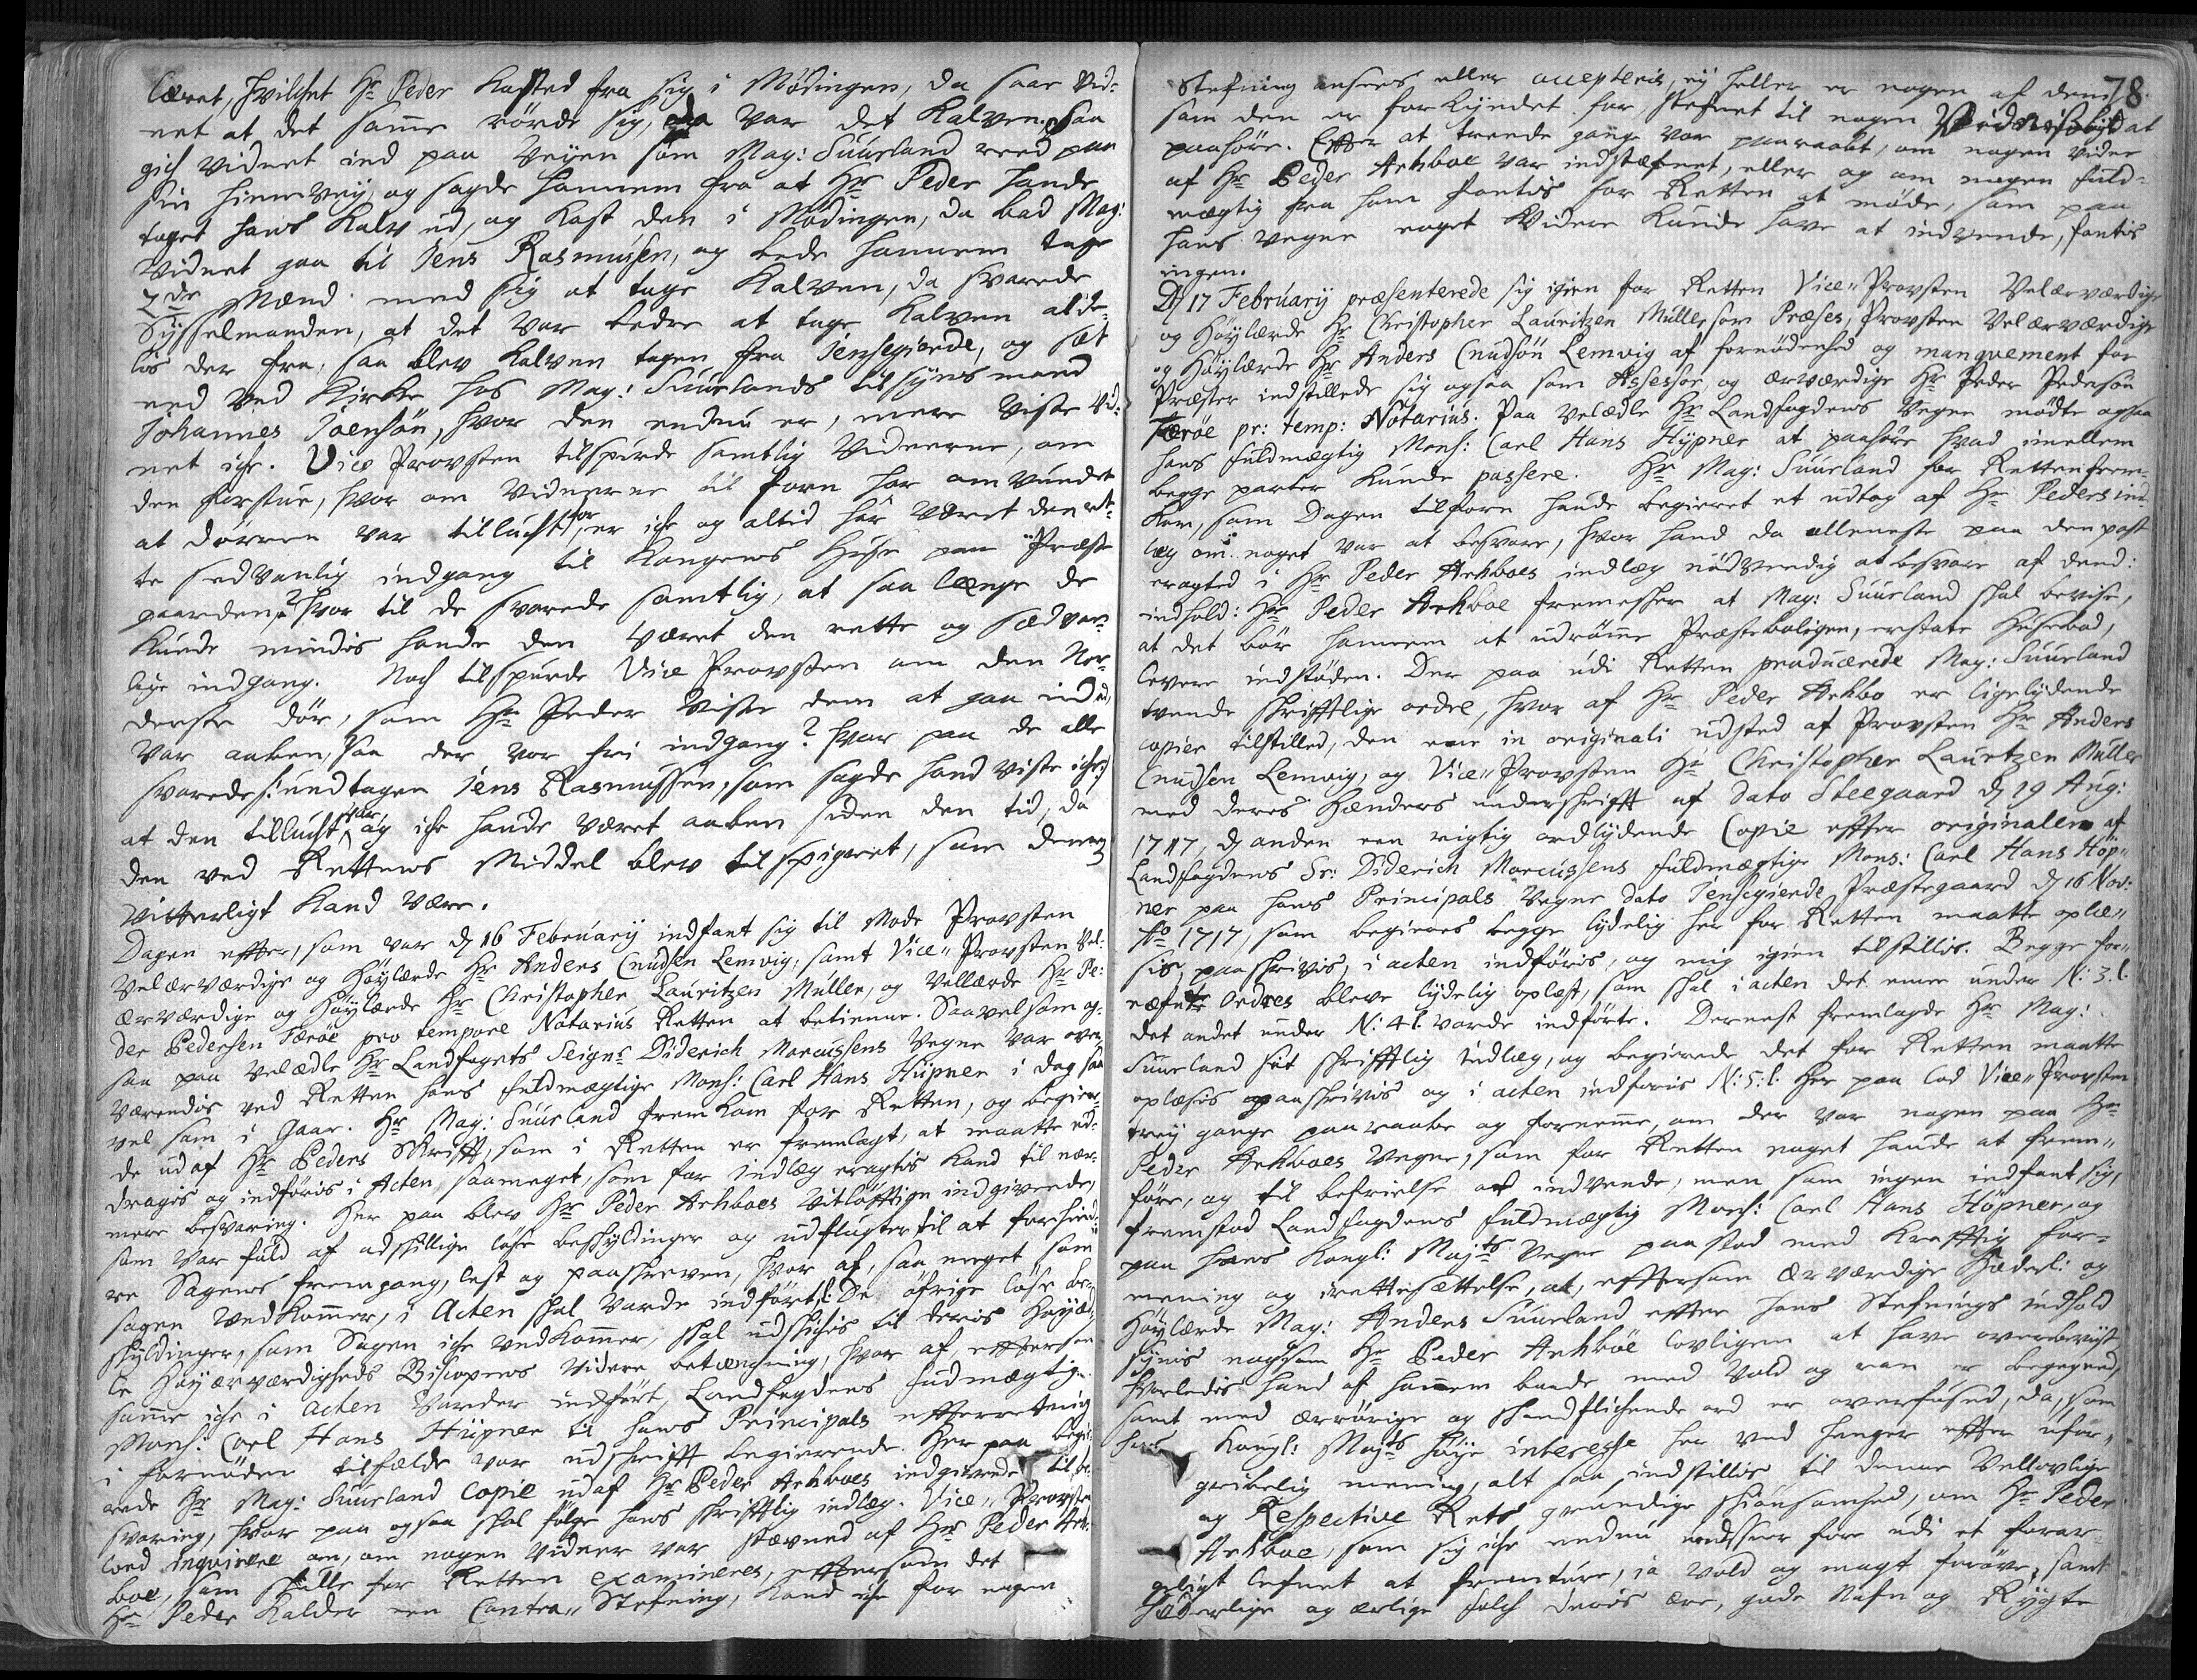 læret, hvilchet Hr Peder kasted fra sig i Mødingen, da saae Vid-
net at det samme rörde sig, da var det Kalven. Saa
gich vidnet ind paa Veyen som Mag: Suurland reed paa
sin hiemvey, og sagde hannem fra at Hr Peder hafde
taget hans Kalv ud, og kast den i Mødingen, da bad Mag:
vidnet gaa til Jens Rasmussen, og bede hannem tage
2de Mænd med sig at tage Kalven, da svarede
Sysselmanden, at det var bedre at tage Kalven alde-
lis der fra, saa blev Kalven tagen fra Jensegierde, og sat
ned ved Kirke hos Mag: Suurlands tilsyns mand
Johannes Joensön, hvor den endnu er, mere viste vid-
net iche. Vice Provsten tilspurde samtlig Vidnerne, om
den forstue, hvor om vidnerne til forn har om vundet
at dörren var tillucht for, er iche og altid hâr været den ret-
te sedvanlig indgang til Kongens Huse paa Præste
gaarden? hvor til de svarede samtlig, at saa længe de
kunde mindis hafde den været den rette og sædvan-
lige indgang. Noch tilspurde Vice Provsten om den Nor-
derste dör, som Hr Peder viste dem at gaa ind ad,
var aaben, saa der var frii indgang? hvor paa de alle
svarede /: undtagen Jens Rasmussen, som sagde hand viste iche :/
at den tillucht var, og iche hafde været aaben siden den tid, da
den ved Rettens Middel blev tilspigeret, som dennem
vitterligt kand være.
Dagen effter, som var d/ 16 February indfant sig til Mode Provsten
Velærværdige og Höylærde Hr Anders Cnudsen Lemvig, samt Vice„ Provsten Vel-
ærværdige og Höylærde Hr Christopher Lauritzen Müller, og vellærde Hr Pe-
der Pedersen Færöe pro tempore Notarius Retten at betienne. Saavelsom og-
saa paa velædle Hr Landfogets Seignr Diderich Marcussens Vegne var over-
værendis ved Retten hans fuldmægtige Mons: Carl Hans Hüpner i dag saa
vel som i Gaar. Hr Mag: Suurland fremkom for Retten, og begier-
de udaf Hr Peders Skrifft, som i Retten er fremlagt, at maatte ud-
dragis og indföris i Acten, saameget, som for indlæg eragtis kand til nær-
mere besvaring. Her paa blev Hr Peder Arhboes vitlöfftige indgivende,
som var fuld af adskillige löse beskyldinger og udflugter til at forhind-
re Sagens fremgang, lest og paaskreven, hvor af, saa meget, som
sagen vedkommer, i Acten skal vorde indfört/: De öfrige löse be-
skyldinger, som Sagen iche vedkommer, skal udskichis til deris Höyæd-
le Höyærværdigheds Biscopens videre betænchning, hvor af, effterson
samme iche i acten vorder indfört, Landfogdens fuldmægtige
Mons: Carl Hans Hüpner til hans Principals efterretning
i fornøden tilfælde var udskrifft begierende. Her paa begie-
rede Hr Mag: Suurland Copie udaf Hr Peder Arhboes indgivende til be-
svaring, hvor paa ogsaa skal fölge hans skrifftlig indlæg. Vice„ Provsten
loed inqvirere om, om nogen vidner var stævned af Hr Peder Arh-
boe, som skulle for Retten examineres, effterson det
Hr Peder kalder een Contra„ Stefning, kand iche for nogen
78.
Stefning ansees eller accepteris, ey heller er nogen af dem,
som den er forkyndet for, stefnet til nogen Vidnisbyrd at
paahöre. Effter at trende gange var paaraabt, om nogen vidner
af Hr Peder Arhboe var indstæfnet, eller og om nogen fuld-
mægtig fra ham fantis for Retten at möde, som paa
hans vegne noget Widere kunde have at indvende, fantis
ingen.
D/ 17 February præsenterede sig igien for Retten Vice„ Provsten Velærværdige
og Höylærde Hr Christopher Lauritzen Müller som Præses, Provsten Velærværdige
og Höylærde Hr Anders Cnudsön Lemvig af fornödenhed og manqvement for
Præster indstillede sig ogsaa som Assessor, og ærværdige Hr Peder Pedersön
Færöe pr: temp: Notarius. Paa velædle Hr Landfogdens Vegne mödte ogsaa
hans fuldmægtig Mons: Carl Hans Hypner at paahöre hvad imellem
begge parter kunde passere. Hr Mag: Suurland for Retten frem-
kom, som Dagen tilforn hafde begieret et udtog af Hr Peders ind-
læg om noget var at besvare, hvor hand da alleneste paa den post
eragted i Hr Peder Arhboes indlæg nödvendig at besvare af dend:
indhold: Hr Peder Arhboe fremesker at Mag: Suurland skal bevise,
at det bör hannem at udrömme Præsteboligen, erstate Husebod,
levere indstöden. Der paa udi Retten producerede Mag: Suurland
tvende skrifftlige ordre, hvor af Hr Peder Arhbo er ligelydende
copier tilstilled, den eene in originali udsted af Provsten Hr Anders
Cnudsen Lemvig, og Vice„ Provsten Hr Christopher Lauritzen Müller
med deres hænders underskrifft af dato Steegaard d/ 29 Aug:
1717, d/ anden een rigtig ordlydende Copie effter originalen af
Landfogdens Sr: Diderich Marcussens fuldmægtige Mons: Carl Hans Höp„
ner paa hans Principals Vegne dato Jensegierde Præstegaard d/ 16 Nov:
Ao 1717, som begieres begge lydelig her for Retten maatte oplæ„
sis, paaskrivis, i acten indföris, og mig igien tilstillis. Begge for„
næfnte Ordres bleve lydelig oplæst, som skal i acten det eene under N: 3. l.
det andet under N: 4 l. vorde indförte. Dernest fremlagde Hr Mag:
Suurland sit skrifftlig indlæg, og begierede det for Retten maatte
oplæsis paaskrivis og i acten indföris N: 5: l. Her paa lod Vice„ Provsten
trey gange paaraabe og fornemme, om der var nogen paa Hr
Peder Arhboes Vegne, som for Retten noget hafde at frem„
före, og til befrielse at indvende, men som ingen indfant sig,
fremstod Landfogdens fuldmægtig Mons: Carl Hans Höpner, og
paa hans Kongl: Majts Vegne paastod med krafftig for-
mening og irettesættelse, at, efftersom Ærværdige Hæderl: og
Höylærde Mag: Anders Suurland effter hans Stefnings indhold
synis nogsom Hr Peder Arhböe lovligen at have overbeviist,
hvorledis hand af hannem baade med Vold og ran er begegned,
samt med ærrörige og skandflichende ord er overfused, da, som
hans Kongl: Majts höye interesse her ved henger effter ufor„
gribelig mening, alt saa indstillis til denne Vellovlige
og Respective Rets grundige skiönsomhed, om Hr Peder
Arhboe, som sig iche endnu undseer for udi et forar-
geligt lefnet at fremture, ia vold og magt foröve, samt
Hæderlige og ærlige folch deris ære, gode Nafn og Rygte